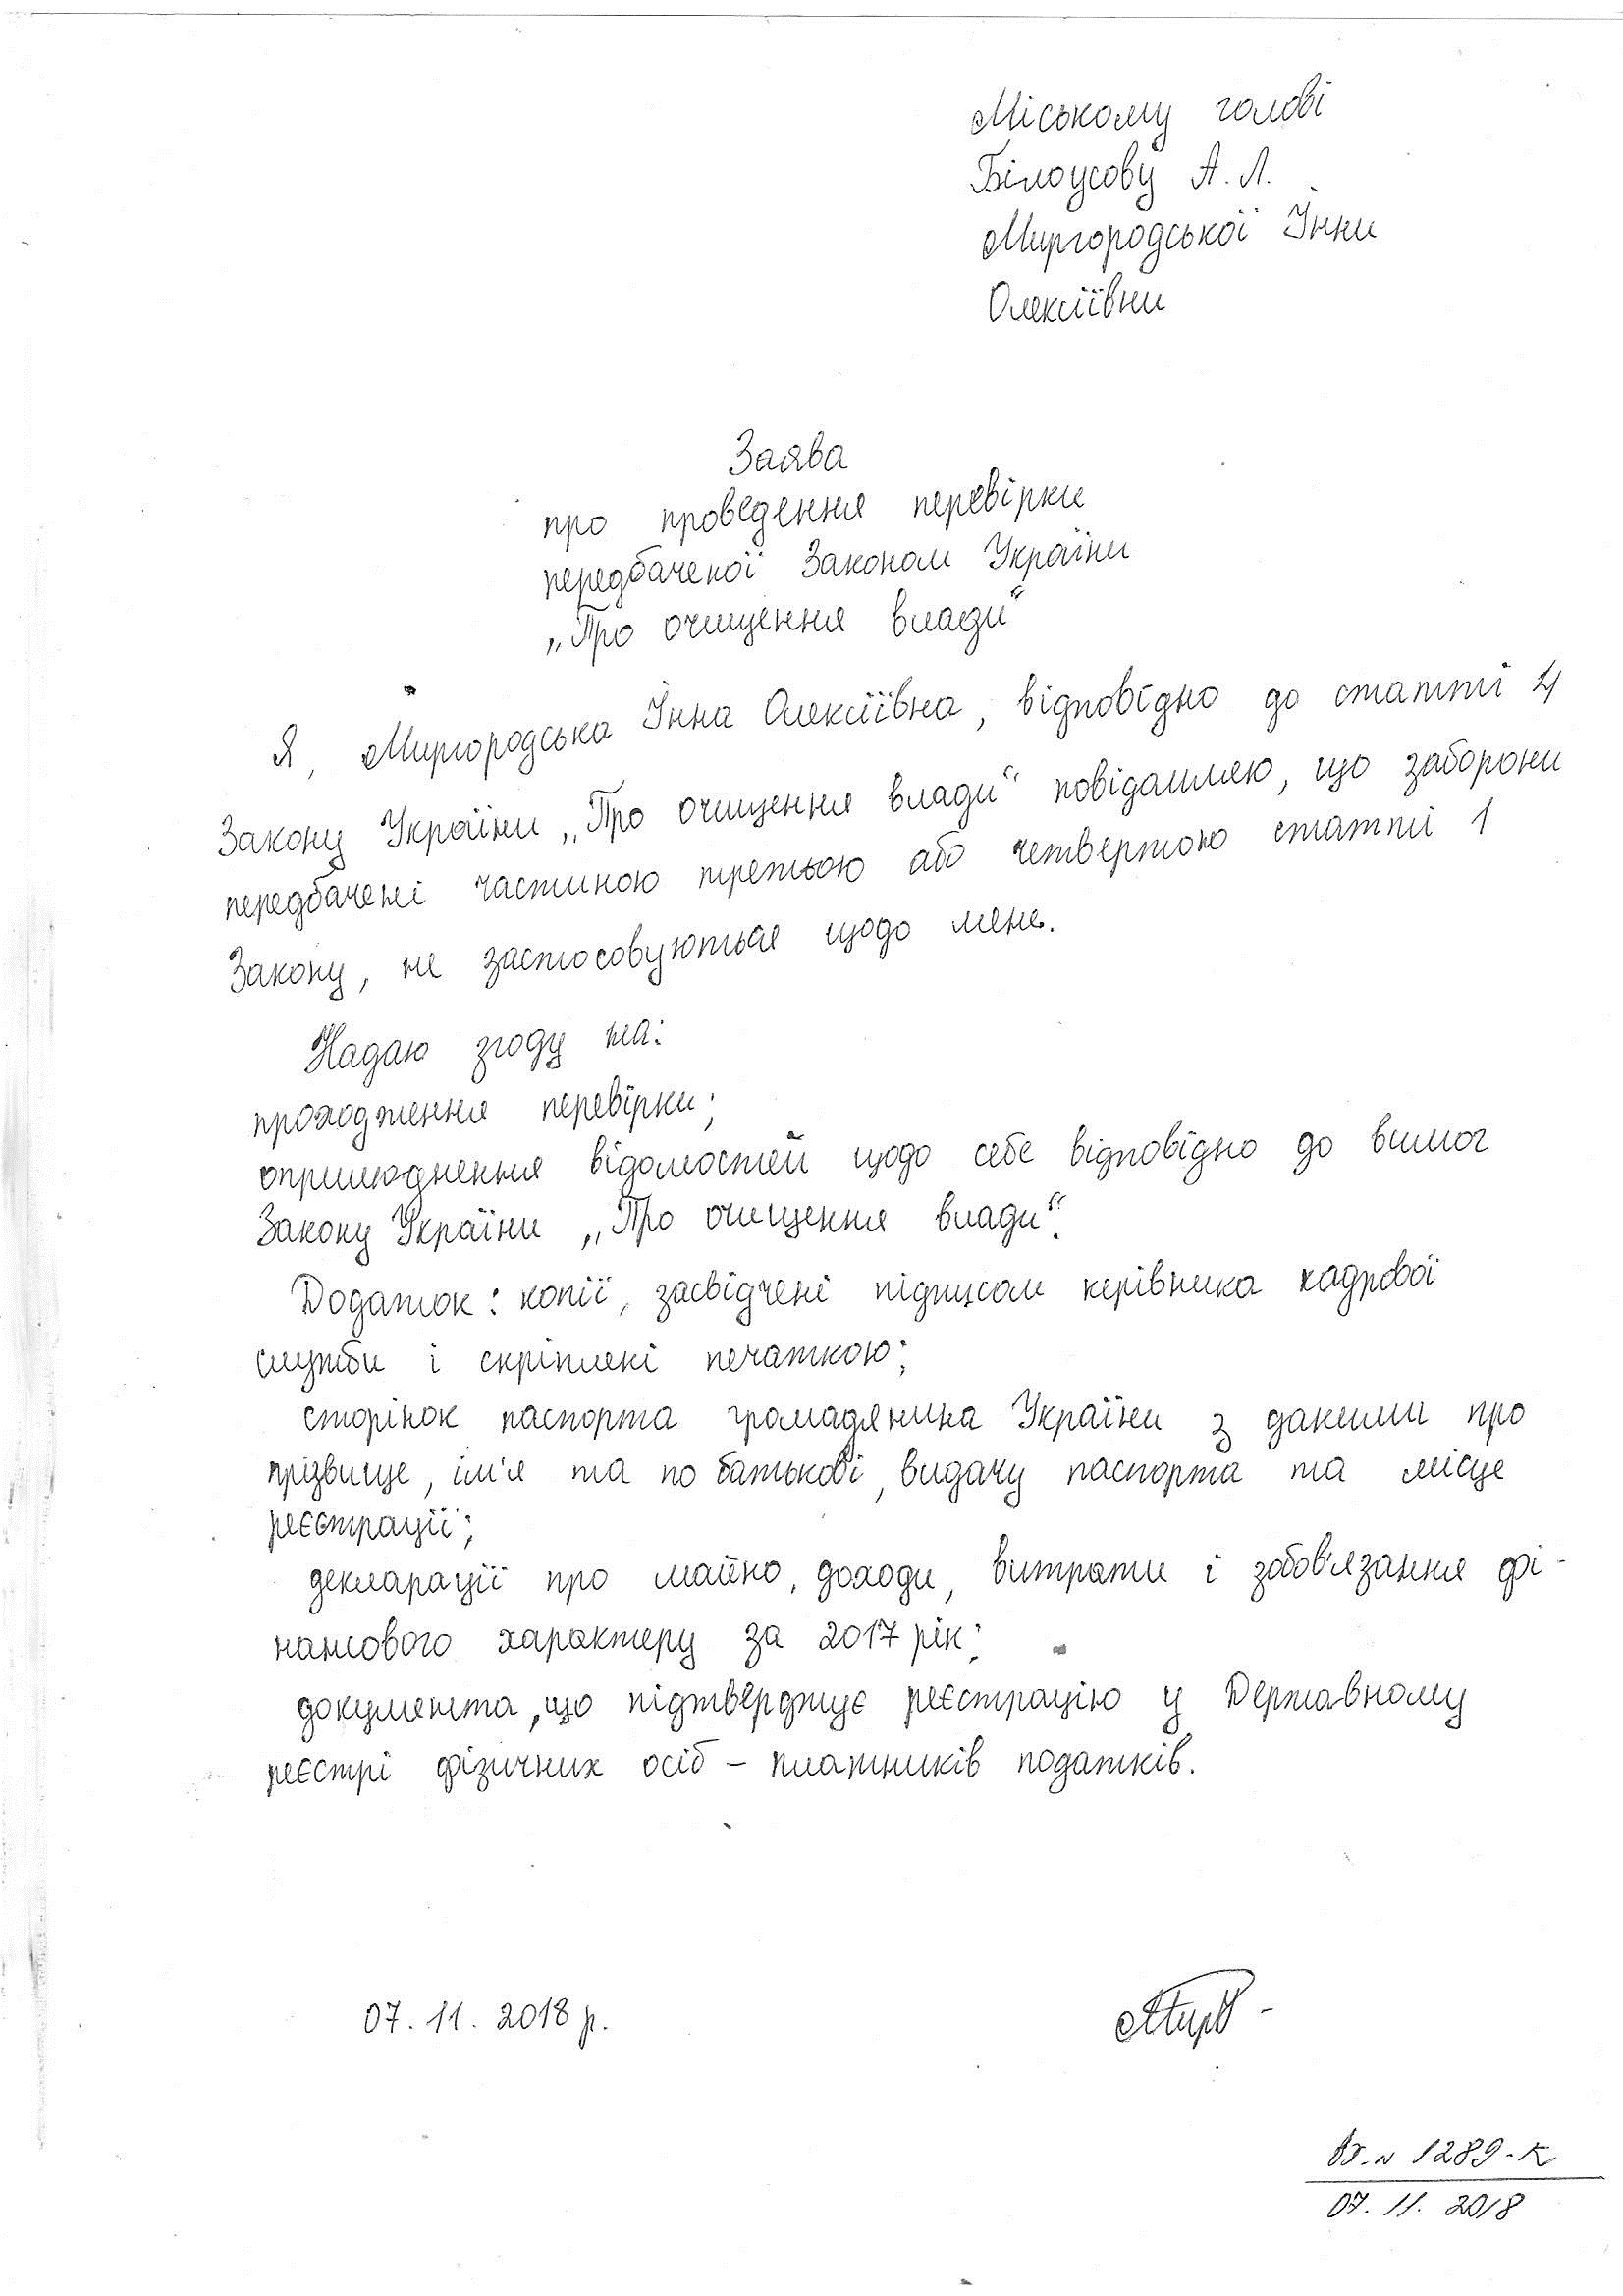 Міському голові
Білоусову А. Л.
Миргородської Інни
Олексіївни
Заява
про проведення перевірки
передбаченої Законом України
„Про очищення влади“
Я, Миргородська Інна Олексіївна, відповідно до статті 4
Закону України „Про очищення влади“ повідомляю, що заборони
передбачені частиною третьою або четвертою статті 1
Закону, не застосовуються щодо мене.
Надаю згоду на:
проходження перевірки;
оприлюднення відомостей щодо себе відповідно до вимог
Закону України „Про очищення влади“.
Додаток: копії, засвідчені підписом керівника кадрової
служби і скріплені печаткою:
сторінок паспорта громадянина України з даними про
прізвище, ім'я та по батькові, видачу паспорта та місце
реєстрації;
декларації про майно, доходи, витрати і зобов'язання фі-
нансового характеру за 2017 рік;
документа, що підтверджує реєстрацію у Державному
реєстрі фізичних осіб – платників податків.
07. 11. 2018 р.
Вх. № 1289-К
07. 11. 2018